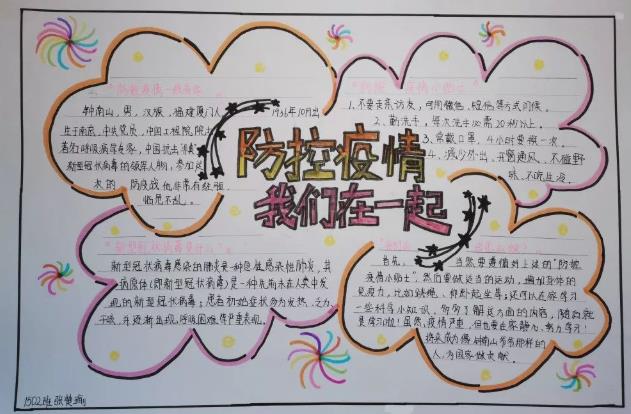 钟南山，男，汉族，福建厦门人，1936年10月出
生于南京，中共党员，中国工程院院士
著名呼吸病学专家，中国抗击非典
新型冠状病毒的领军人物，参加
的防疫战他非常有经验
临危不乱。
1、不要走亲访友，可用微信、短信等方式问候。
2、勤洗手，每次洗手必需20秒以上。
3、常戴口罩，4小时要换一次。
4、减少外出，开窗通风，不碰野
味，不吃生冷。
防控疫情
我们在一起
新型冠状病毒是什么？
新型冠状病毒感染的肺炎是一种急性感染性肺炎，其
病原体(即新型冠状病毒)是一种先前未在人类中发
现的新型冠状病毒，患者初始症状多为发热、乏力
干咳，并逐渐出现呼吸困难等严重表现。
首先，当然要遵循到上述的“防控
疫情小贴士”，然后要做适当的运动，增加身体的
免疫力，比如跳绳、仰卧起坐等，还可以在家学习
一些科学小知识，
学习啦！虽然，疫情严重，但也要在家静心，努力学习！
将来成为像钟南山爷爷那样的
人，为国家做贡献。
1502班